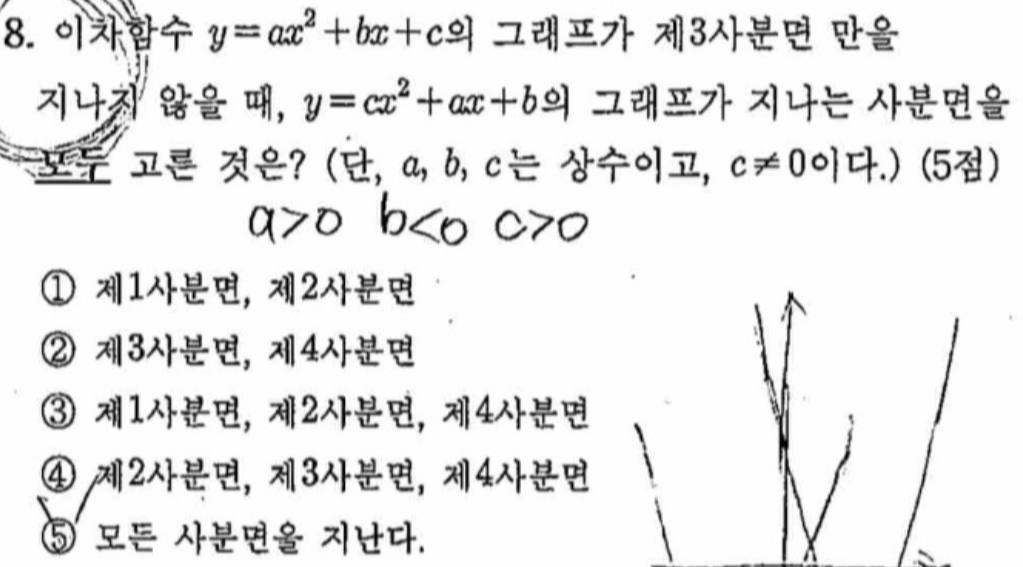 8. 이차함수 y=ax²+bx+c의 그래프가 제3사분면 만을
지나지 않을 때, y=cx²+ax+b의 그래프가 지나는 사분면을
모두 고른 것은? (단, a, b, c는 상수이고, c≠0이다.) (5점)
a>0 b<0 c>0
① 제1사분면, 제2사분면
② 제3사분면, 제4사분면
③ 제1사분면, 제2사분면, 제4사분면
④ 제2사분면, 제3사분면, 제4사분면
⑤ 모든 사분면을 지난다.